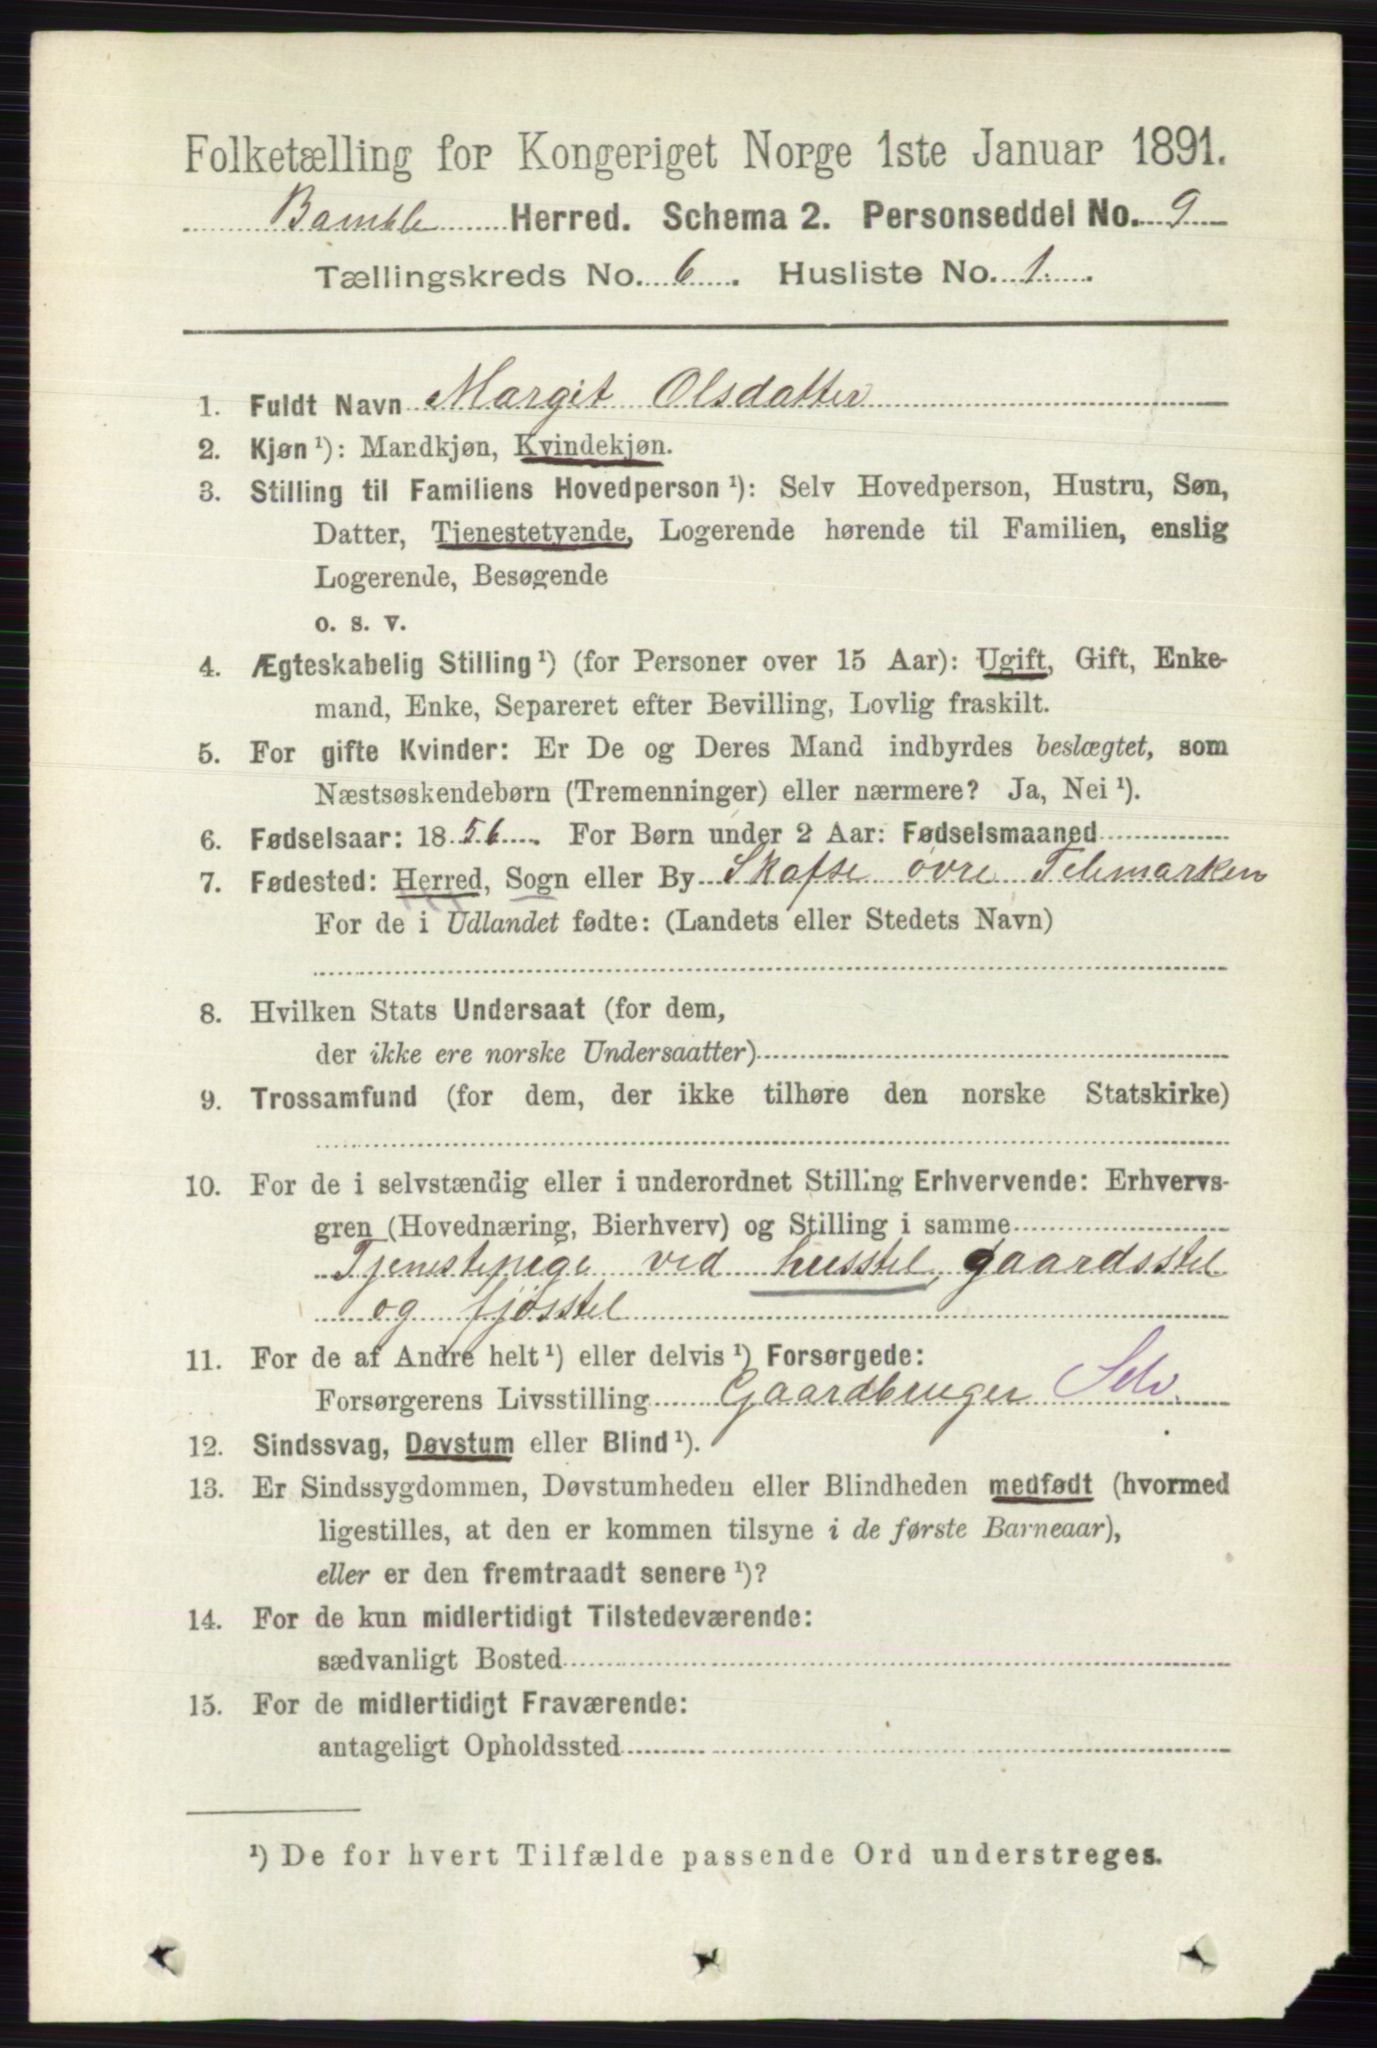 Folketælling for Kongeriget Norge 1ste Januar 1891.
Bamble Herred. Schema 2. Personseddel No. 9
Tællingskreds No. 6. Husliste No. 1.
1. Fuldt Navn Margit Olsdatter
2. Kjøn ¹): Mandkjøn, Kvindekjøn.
3. Stilling til Familiens Hovedperson ¹): Selv Hovedperson, Hustru, Søn,
Datter, Tjenestetyende, Logerende hørende til Familien, enslig
Logerende, Besøgende
o. s. v.
4. Ægteskabelig Stilling ¹) (for Personer over 15 Aar): Ugift, Gift, Enke-
mand, Enke, Separeret efter Bevilling, Lovlig fraskilt.
5. For gifte Kvinder: Er De og Deres Mand indbyrdes beslægtet, som
Næstsøskendebørn (Tremenninger) eller nærmere? Ja, Nei ¹).
6. Fødselsaar: 1856. For Børn under 2 Aar: Fødselsmaaned
7. Fødested: Herred, Sogn eller By Skafse øvre Telemarken
For de i Udlandet fødte: (Landets eller Stedets Navn)
8. Hvilken Stats Undersaat (for dem,
der ikke ere norske Undersaatter)
9. Trossamfund (for dem, der ikke tilhøre den norske Statskirke)
10. For de i selvstændig eller i underordnet Stilling Erhvervende: Erhvervs-
gren (Hovednæring, Bierhverv) og Stilling i samme
Tjenestepige ved husstel, gaardsstel
og fjøsstel
11. For de af Andre helt ¹) eller delvis ¹) Forsørgede:
Forsørgerens Livsstilling Gaardbruger Selv.
12. Sindssvag, Døvstum eller Blind ¹).
13. Er Sindssygdommen, Døvstumheden eller Blindheden medfødt (hvormed
ligestilles, at den er kommen tilsyne i de første Barneaar),
eller er den fremtraadt senere ¹)?
14. For de kun midlertidigt Tilstedeværende:
sædvanligt Bosted
15. For de midlertidigt Fraværende:
antageligt Opholdssted
¹) De for hvert Tilfælde passende Ord understreges.